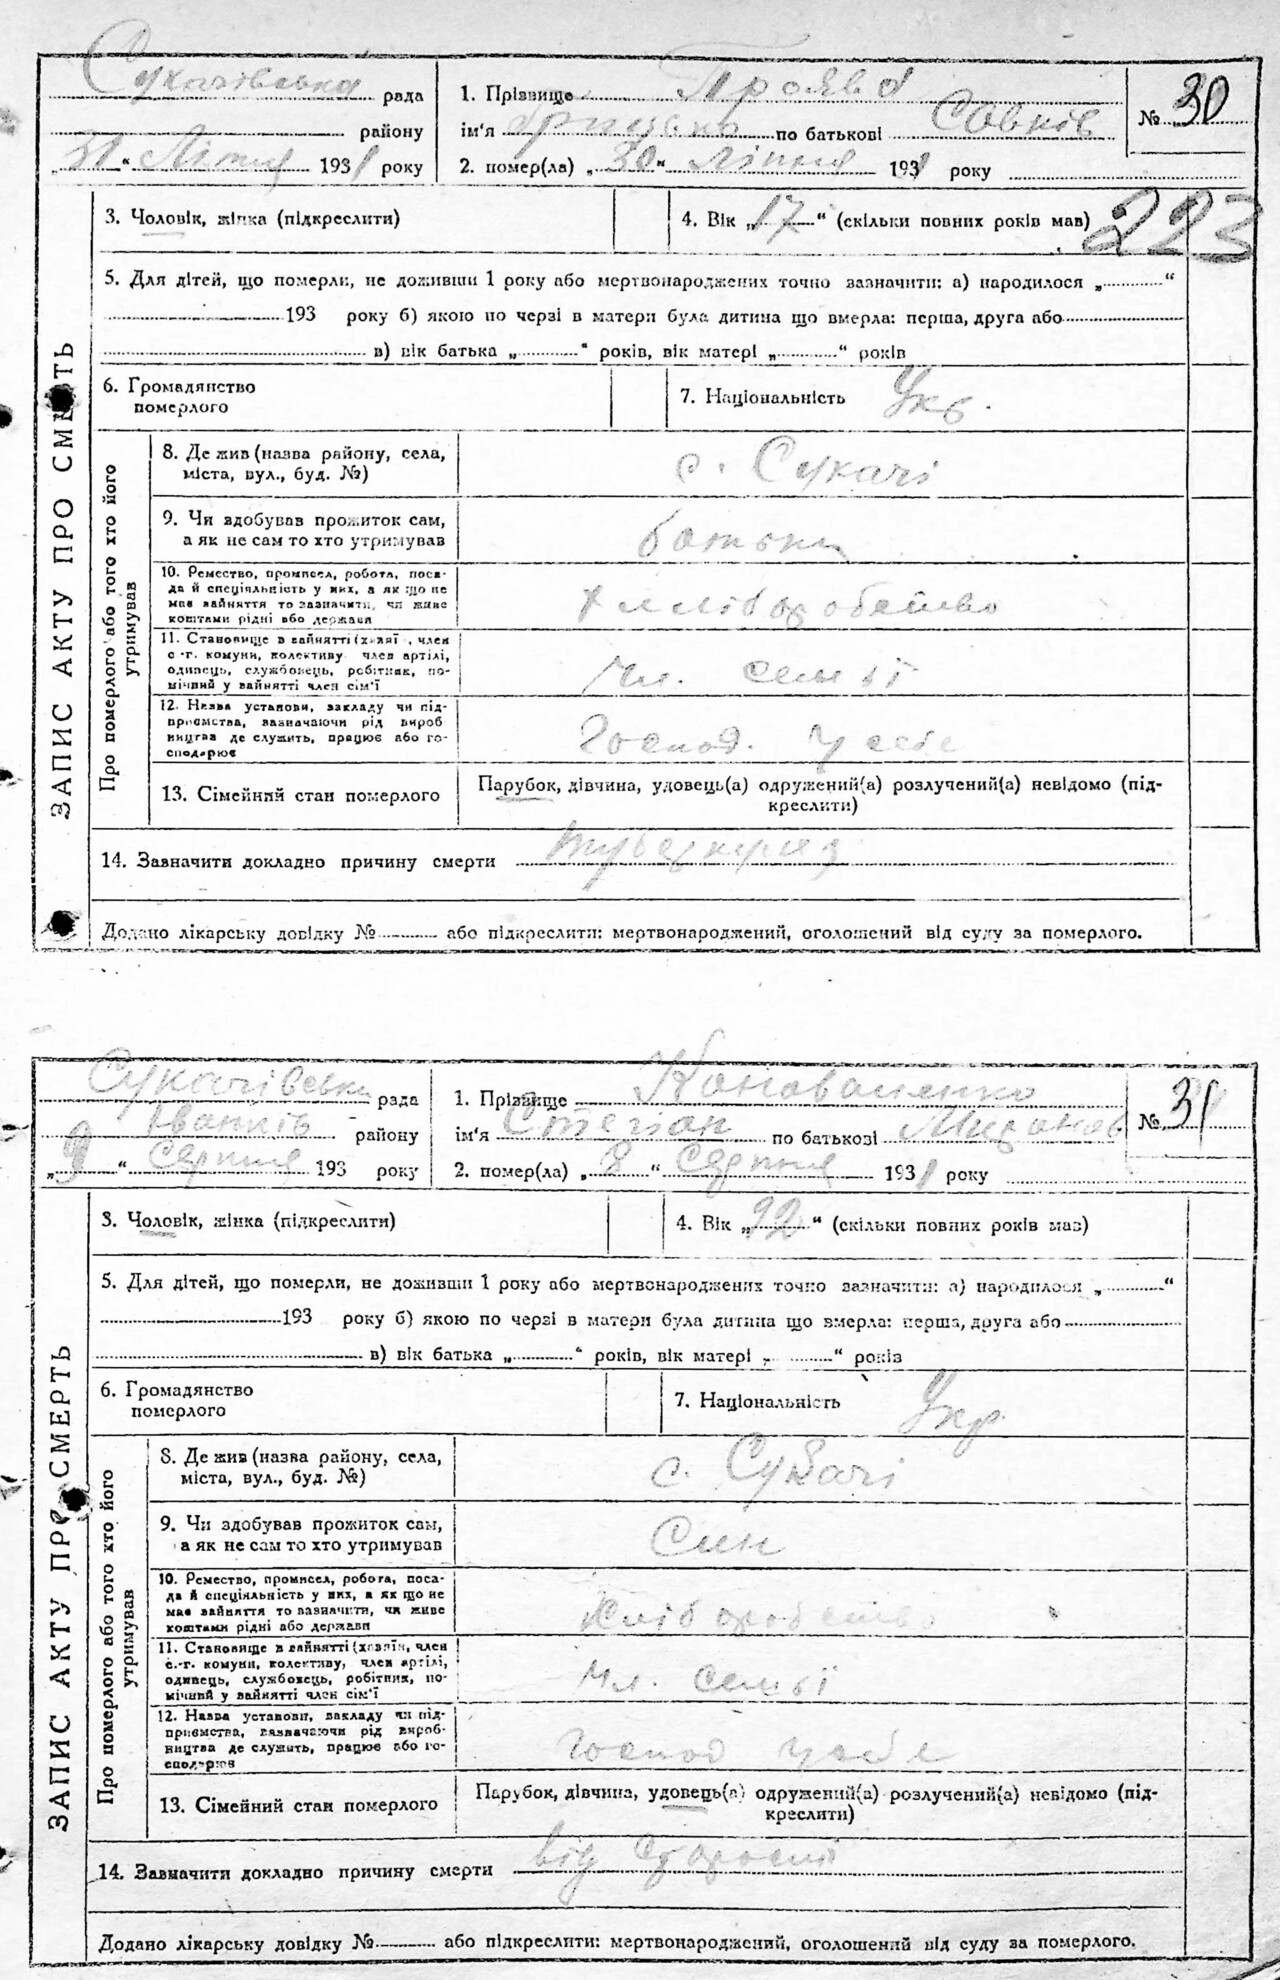 Сукачівська рада
району
„31“ Літня 1931 року
1. Прізвище Проява
ім'я Грицько по батькові Совків
2. помер(ла) „30“ Ліпня 1931 року
№ 30
3. Чоловік, жінка (підкреслити)
4. Вік „17“ (скільки повних років мав)
223
5. Для дітей, що померли, не доживши 1 року або мертвонароджених точно зазначити: а) народилося „ “
193 року б) якою по черзі в матери була дитина що вмерла: перша, друга або
в) вік батька „ “ років, вік матері „ “ років
6. Громадянство
померлого
7. Національність Укр.
ЗАПИС АКТУ ПРО СМЕРТЬ
Про померлого або того хто його
утримував
8. Де жив (назва району, села,
міста, вул., буд. №)
с. Сукачі
9. Чи здобував прожиток сам,
а як не сам то хто утримував
батьки
10. Ремество, промисел, робота, поса-
да й спеціяльність у них, а як що не
має зайняття то зазначити, чи живе
коштами рідні або держави
Хліборобство
11. Становище в зайнятті (хазяї , член
с -г. комуни, колективу член артілі,
одинець, службовець, робітник, по-
мічний у зайнятті член сім'ї
Чл. семьї
12. Назва установи, закладу чи під-
приємства, зазначаючи рід вироб
ництва де служить, працює або го-
сподарює
Господ. у себе
13. Сімейний стан померлого
Парубок, дівчина, удовець(а) одружений(а) розлучений(а) невідомо (під-
креслити)
14. Зазначити докладно причину смерти туберкульоз
Додано лікарську довідку № або підкреслити: мертвонароджений, оголошений від суду за померлого.
Сукачівська рада
Іванків району
„9“ Серпня 193 року
1. Прізвище Коноваленко
ім'я Степан по батькові Миронов
2. помер(ла) „8“ Серпня 1931 року
№ 31
3. Чоловік, жінка (підкреслити)
4. Вік „92“ (скільки повних років мав)
5. Для дітей, що померли, не доживши 1 року або мертвонароджених точно зазначити: а) народилося „ “
193 року б) якою по черзі в матери була дитина що вмерла: перша, друга або
в) вік батька „ “ років, вік матері „ “ років
6. Громадянство
померлого
7. Національність Укр.
ЗАПИС АКТУ ПРО СМЕРТЬ
Про померлого або того хто його
утримував
8. Де жив (назва району, села,
міста, вул., буд. №)
с. Сукачі
9. Чи здобував прожиток сам,
а як не сам то хто утримував
Син
10. Ремество, промисел, робота, поса-
да й спеціяльність у них, а як що не
має зайняття то зазначити, чи живе
коштами рідні або держави
Хліборобство
11. Становище в зайнятті (хазяїн, член
с.-г. комуни, колективу, член артілі,
одинець, службовець, робітник, по-
мічний у зайнятті член сім'ї
Чл. семьї
12. Назва установи, закладу чи під-
приємства, зазначаючи рід вироб-
ництва де служить, працює або го-
сподарює
Господ у себе
13. Сімейний стан померлого
Парубок, дівчина, удовець(а) одружений(а) розлучений(а) невідомо (під-
креслити)
14. Зазначити докладно причину смерти від старості
Додано лікарську довідку № або підкреслити: мертвонароджений, оголошений від суду за померлого.